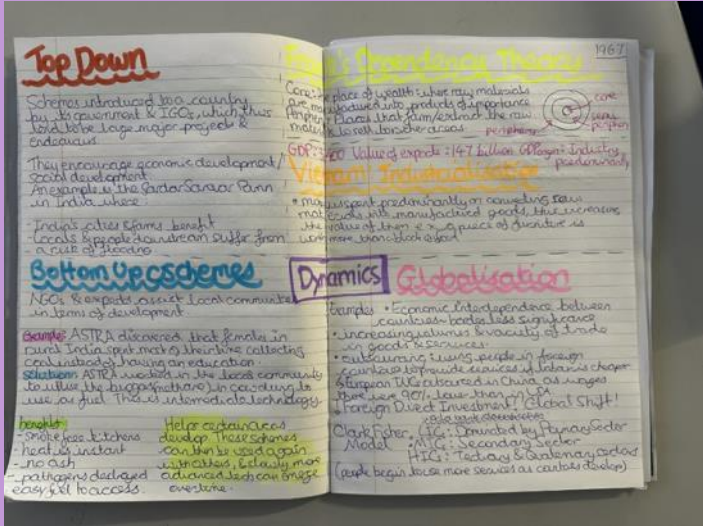 Top Down
Schemes introduced to a country
by its government & IGOs, which thus
tend to be large major projects &
endeavours.
They encourage economic development/
social development
An example is the Sardar Sarovar Dam
in India where:
- India's cities & farms benefit
- Locals & people downstream suffer from
a risk of flooding.
Bottom Up schemes
NGOs & experts assist local communities
in terms of development.
Example: ASTRA discovered that females in
rural India spent most of their time collecting
instead of having an education.
solution: ASTRA worked in the local community
to utilise the biogas (methane) in cow dung to
use as fuel. This is intermediate technology.
benefits
- smoke free kitchens
- heat is instant
- no ash
- pathogens destroyed
easy fuel to access.
Help certain areas
develop. These schemes
can then be used again
with others, & slowly more
advanced tech can emerge
overtime.
1967
Frank's Dependency Theory
Core: the place of wealth: where raw materials
are manufactured into products of importance
Periphery: Places that farm/extract the raw
materials to sell to other areas
core
semi
periphery
periphery
GDP: Value of exports: 147 billion GDP Industry
predominantly
Vietnam: Industrialisation
money spent predominantly on converting raw
materials into manufactured goods, thus increasing
the value of them e.g. a piece of furniture is
worth more than a block of wood
Dynamics
Globalisation
Examples • Economic interdependence between
countries - borders less significance
• increasing volume & variety of trade
in goods & services.
• outsourcing: using people in foreign
countries to provide services if labour is cheaper
European TNCs outsourced in China as wages
there were 90% lower than
Foreign Direct Investment / Global Shift!
Clark Fisher
Model
LIG: Dominated by Primary Sector
MIG: Secondary Sector
HIG: Tertiary & Quaternary sectors
(people begin to use more services as countries develop)